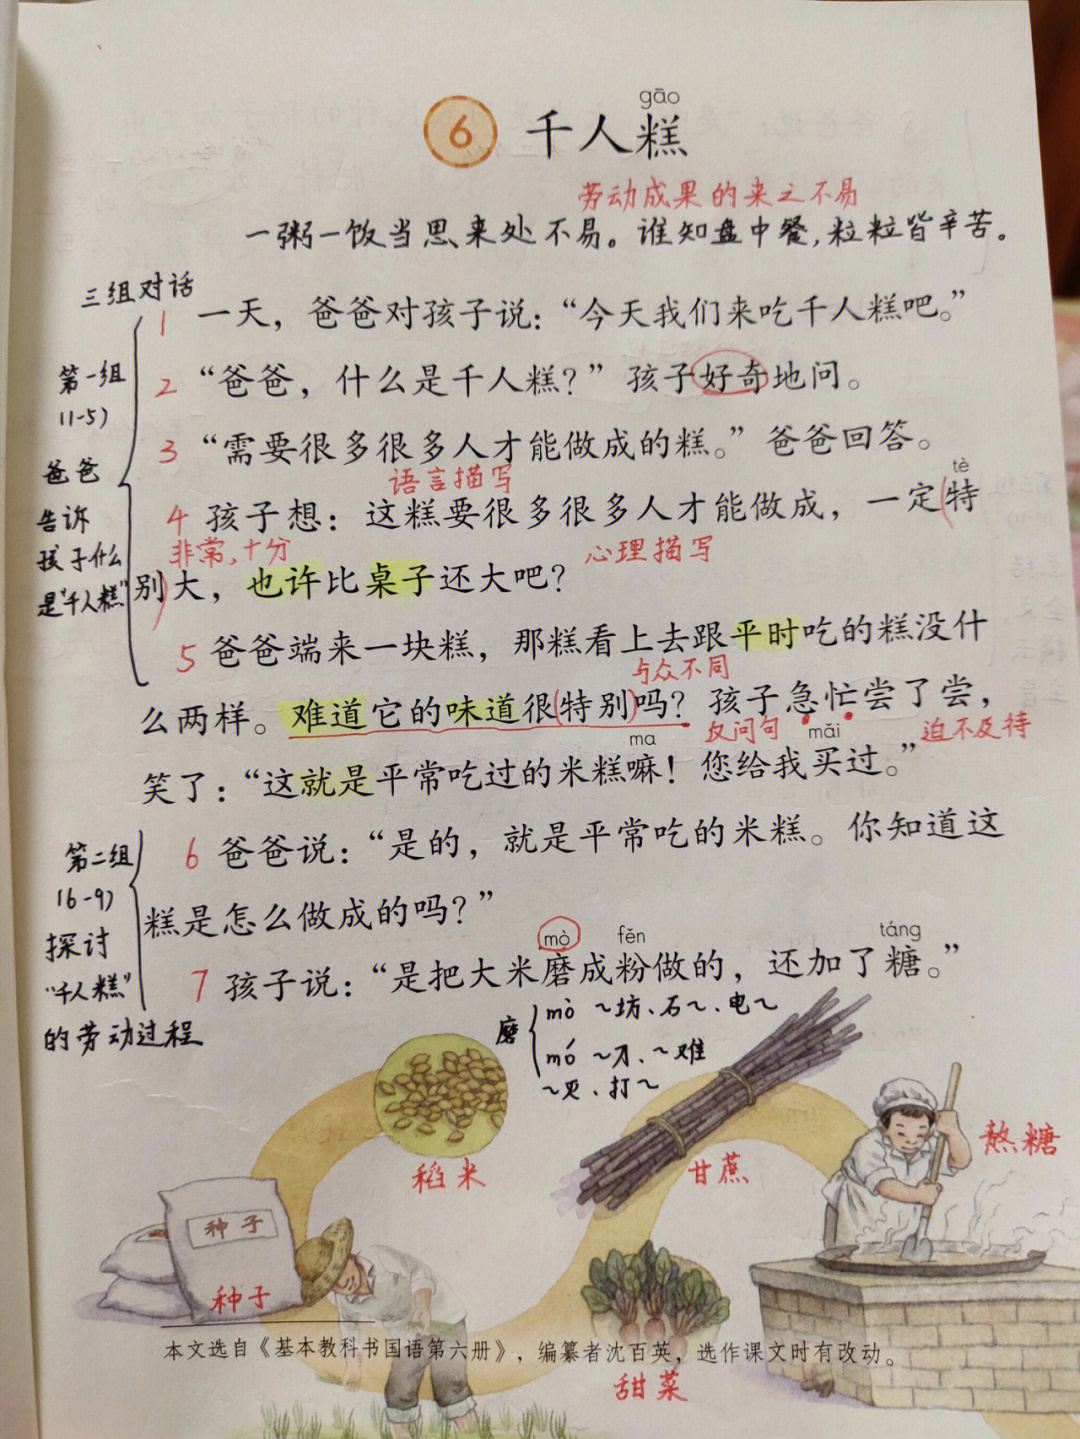 gāo
6 千人糕
劳动成果的来之不易
一粥一饭当思来处不易。谁知盘中餐,粒粒皆辛苦。
三组对话
1 一天，爸爸对孩子说：“今天我们来吃千人糕吧。”
第一组
(1-5)
2 “爸爸，什么是千人糕？”孩子好奇地问。
3 “需要很多很多人才能做成的糕。”爸爸回答。
爸爸
告诉
孩子什么
是“千人糕”
语言描写
tè
4 孩子想：这糕要很多很多人才能做成，一定特
非常,十分
心理描写
别大，也许比桌子还大吧？
5 爸爸端来一块糕，那糕看上去跟平时吃的糕没什
与众不同
么两样。难道它的味道很特别吗？孩子急忙尝了尝，
反问句
迫不及待
ma
mǎi
笑了：“这就是平常吃过的米糕嘛！您给我买过。”
第二组
(6-9)
探讨
“千人糕”
的劳动过程
6 爸爸说：“是的，就是平常吃的米糕。你知道这
糕是怎么做成的吗？”
mò fěn táng
7 孩子说：“是把大米磨成粉做的，还加了糖。”
磨
mò ~坊、石~、电~
mó ~刀、~难
~灭、打~
稻米
甘蔗
熬糖
种子
种子
本文选自《基本教科书国语第六册》，编纂者沈百英，选作课文时有改动。
甜菜